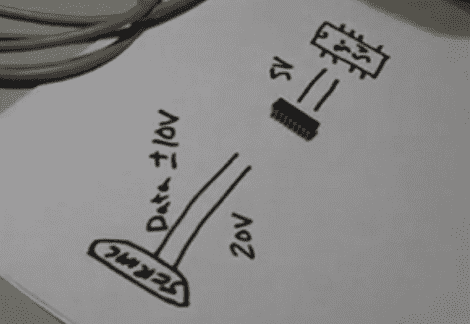 5V
Data ±10V
20V
SERIAL